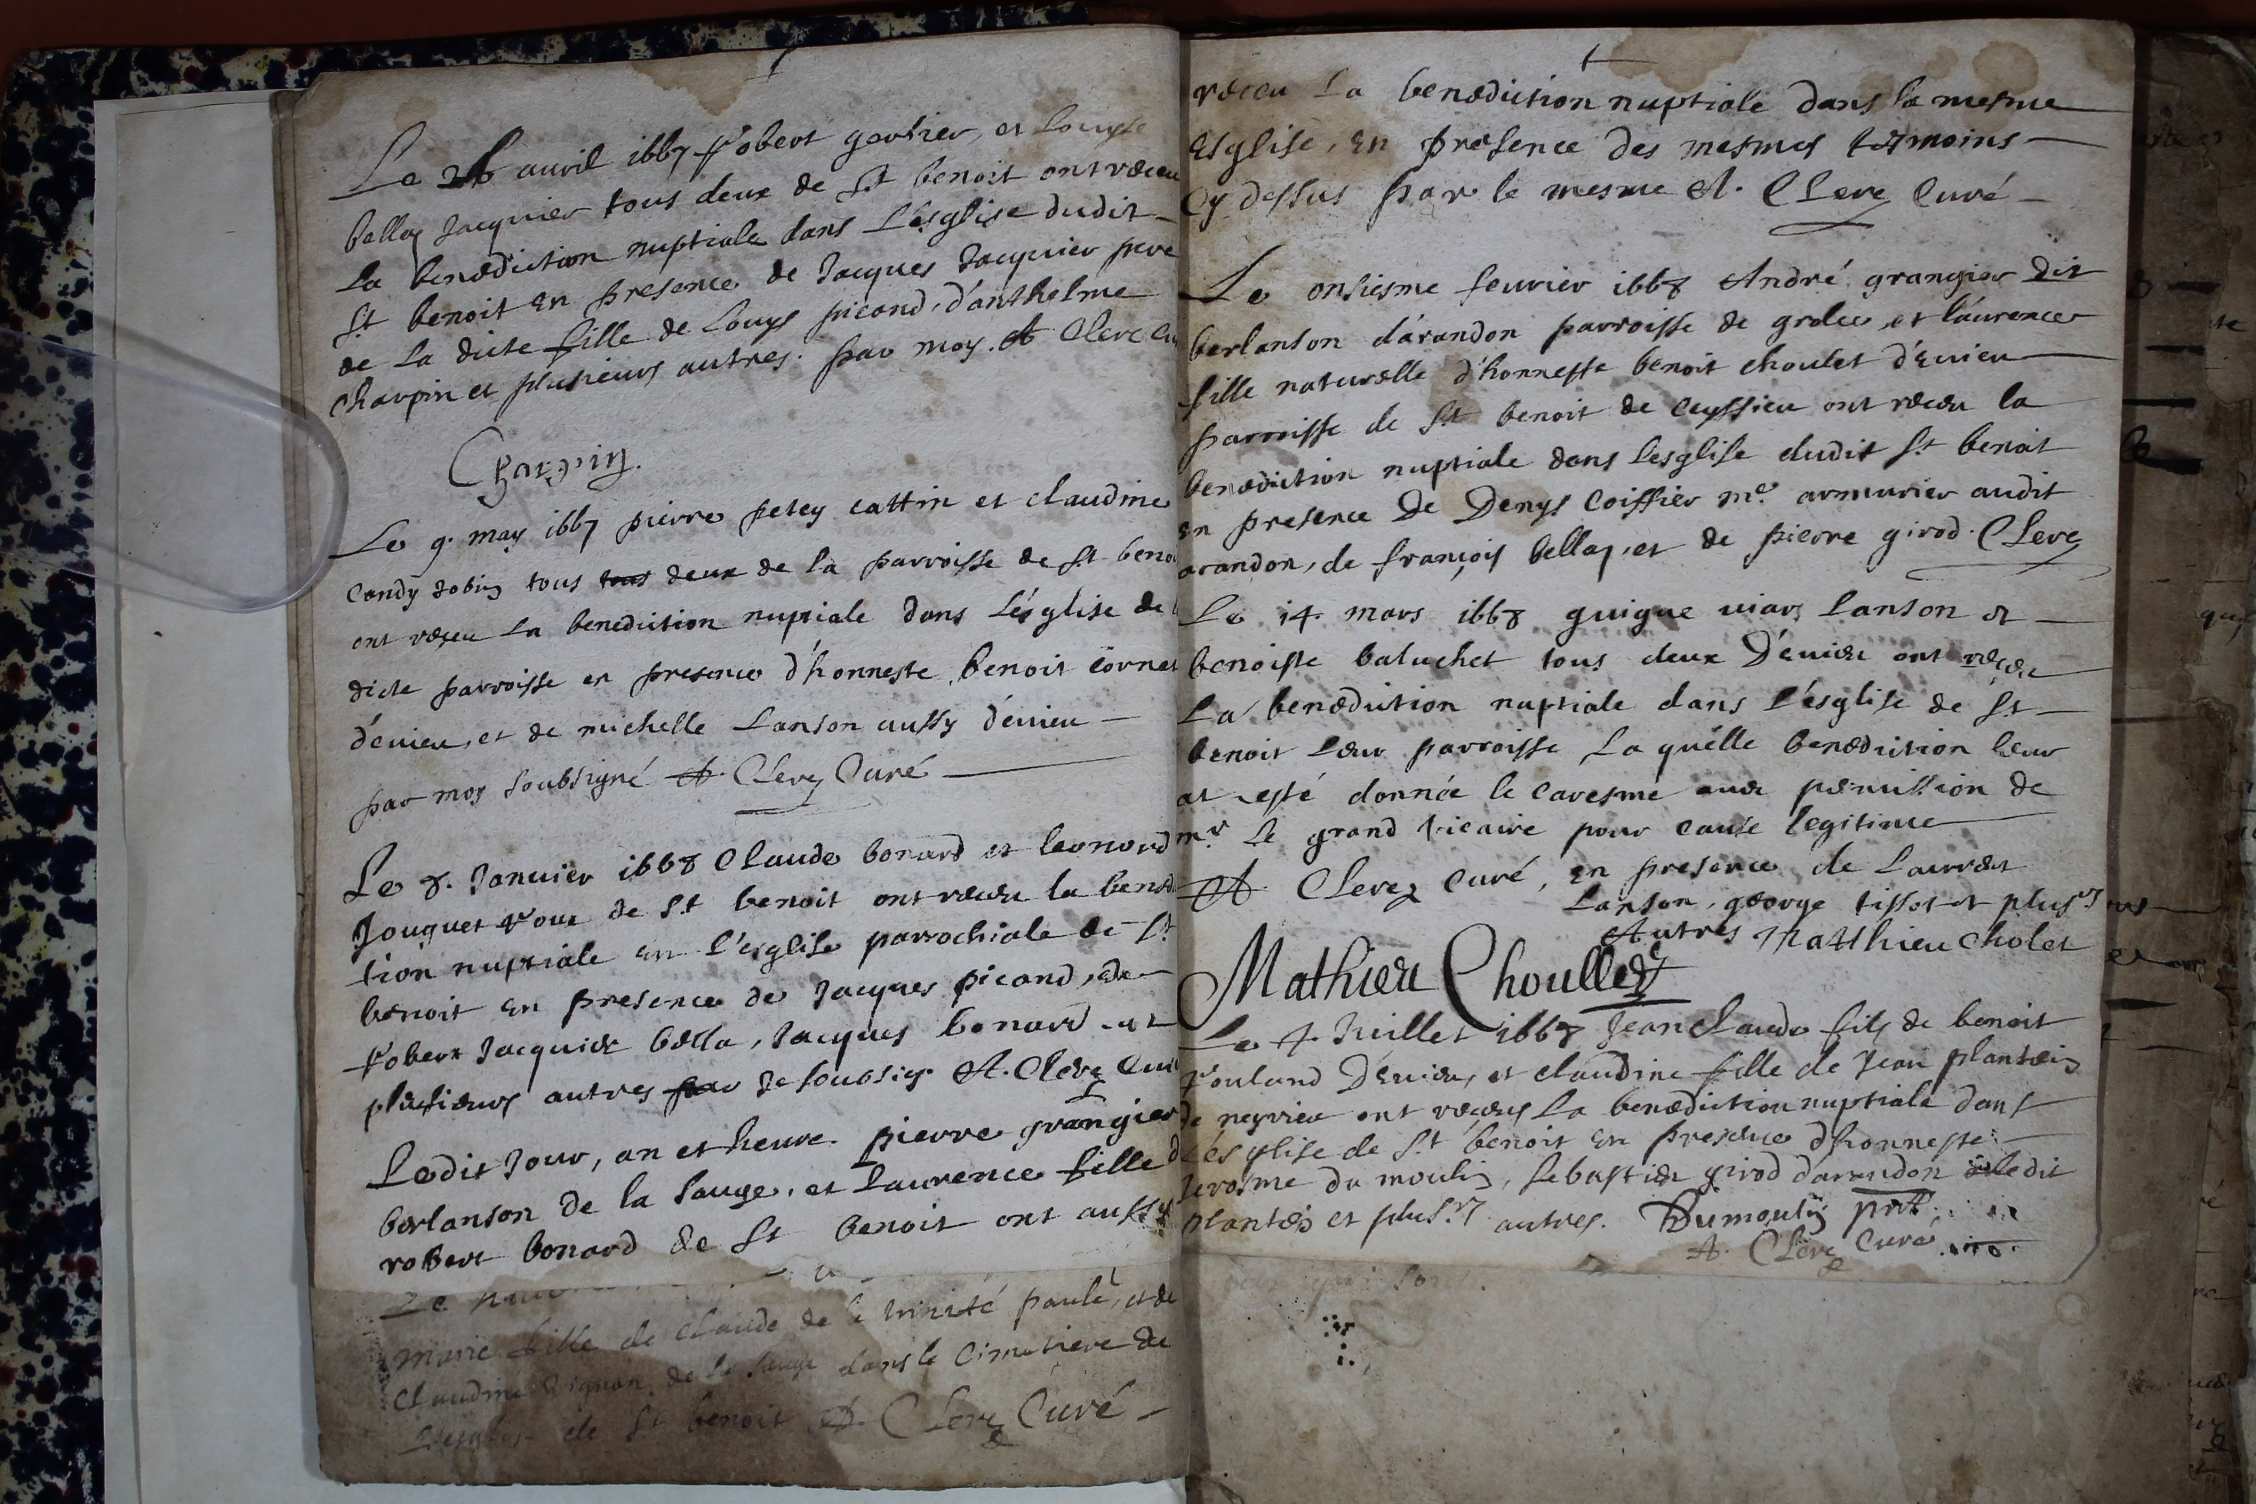 Le 26 auril 1667 robert gertier, et Louyse
bellay Jacquier tous deux de St benoit ont receu
la benediction nuptiale dans L'esglise dudit
St benoit en presence de Jacques Jacquier pere
de La dicte fille de Louys picand, d'anthelme
charpin et plusieurs autres. par moy. A Clerc Cu
Charpin.
Le 9. may 1667 pierre petey cattin et claudine
candy robin tous tous deux de la parroisse de St beno
ont receu La benediction nuptiale dans L'ésglise de l
dicte parroisse en presence d'honneste benoit cornet
d'éuieu, et de michelle Lanson aussy d'éuieu
par moy soubsigné A. Clerc Curé
Le 8. Januier 1668 Claude bonard et leonord
Jouguet roux de St benoit ont receu la bened
tion nuptiale en L'esglise parrochiale de St
benoit en presence de Jacques picand, de
robert Jacquier bella, Jacques bonard et
plusieurs autres par Je soubsig. A. Clerc Cur
Ledit Jour, an et heure. pierre grangier
berlanson de la sauge, et Laurence fille d
robert bonard de St benoit ont aussy
Le
marie fille de claude de la trinité paule, et de
Claudine de la sauge dans le Cimetiere de
de St benoit A. Clerc Curé
receu La benediction nuptiale dans la mesme
Esglise, en presence des mesmes temoins
Cy dessus par le mesme A. Clerc Curé
Le onsiesme feurier 1668 André grangier dit
berlanson d'arandon parroisse de grolee, et Laurence
fille naturelle d'honneste benoit choulet d'Euieu
parroisse de St benoit de Ceyssieu ont receu la
benediction nuptiale dans Lesglise dudit St benoit
en presence De Denys Coiffier me. armurier audit
arandon, de françois bellay, et de pierre girod. Clerc
Le 14. mars 1668 guigue uiars Lanson et
benoiste baluchet tous deux D'éuieu ont receu
La benediction nuptiale dans L'ésglise de St
benoit Leur parroisse La quélle benediction leur
at esté donnée le Caresme auec permission de
mr. Le grand vicaire pour cause legitime
A Clerc Curé, en presence de Laurent
Lanson, george tissot et plusrs
Autres Matthieu Cholet
Mathieu Choullet
Le 4 Juillet 1668 Jean Claude fils de benoit
rouland D'Euieu, et claudine fille de Jean plantin
de neyrieu ont receus La benediction nuptiale dans
L'ésglise de St benoit en presence d'honneste
Jerosme du moulin, Sebastien girod darandon ledit
plantin et plusrs autres. Dumoulin prnt
A. Clerc Curé